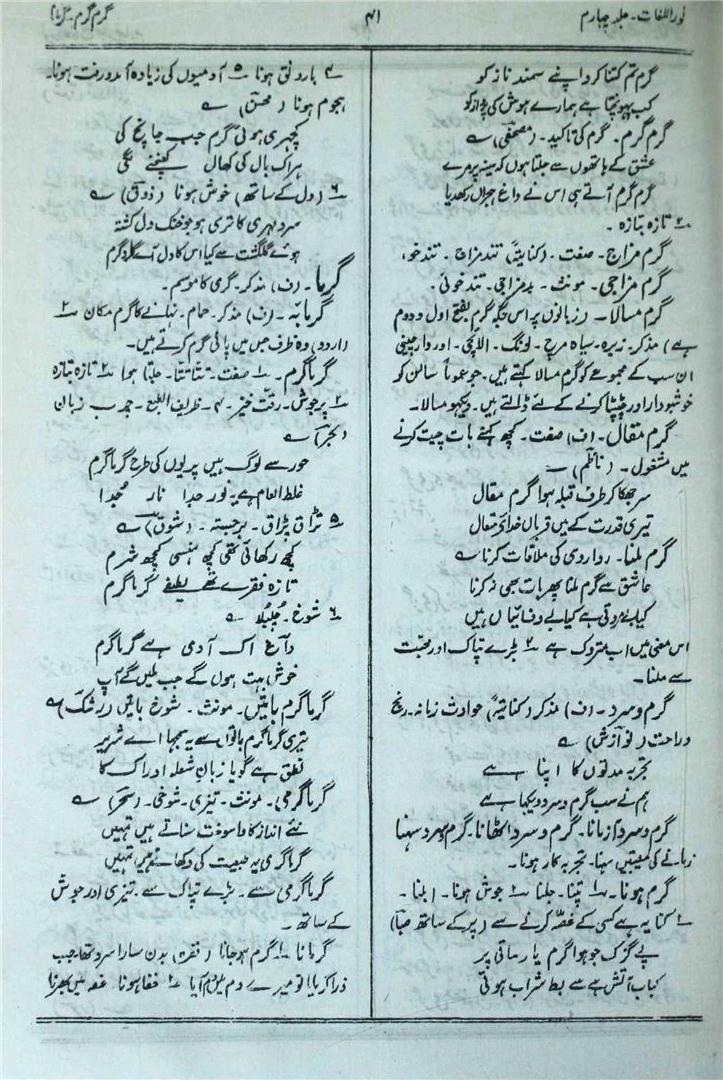 نور اللغات۔ جلد چہارم
۴۱
گرم گرم۔
گرم تم کتنا کرو اپنے سمند ناز کو
کب پہونچتا ہے ہمارے ہوش کی پرواز کو
گرم گرم۔ گرم کی تاکید۔ (مصحفی) ؎
عشق کے ہاتھوں سے جلتا ہوں کہ سینہ پر مرے
گرم گرم آتے ہی اس نے داغ ہجراں رکھدیا
۲ تازہ بتازہ۔
گرم مزاج۔ صفت۔ (کنایتہً) تند مزاج۔ تند خو،
گرم مزاجی۔ مونث۔ بدمزاجی۔ تند خوئی۔
گرم مسالا۔ (زبانوں پر اس جگہ گرم بفتح اول و دوم
ہے) مذکر۔ زیرہ۔ سیاہ مرچ۔ لونگ۔ الائچی۔ اور دارچینی
ان سب کے مجموعے کو گرم مسالا کہتے ہیں۔ جو عموماً سالن کو
خوشبودار اور چٹپٹا کرنے کے لئے ڈالتے ہیں۔ دیکھو مسالا۔
گرم مقال۔ (ف) صفت۔ کچھ کہنے بات چیت کرنے
میں مشغول۔ (ناظم) ؎
سر جھکا کر طرف قبلہ ہوا گرم مقال
تیری قدرت کے میں قربان خدائے متعال
گرم ملنا۔ رواروی کی ملاقات کرنا ؎
عاشق سے گرم ملنا پھر بات بھی نہ کرنا
کیا بے مروتی ہے کیا بے وفائیاں ہیں
اس معنی میں اب متروک ہے ۲ بڑے تپاک اور محبت
سے ملنا۔
گرم و سرد۔ (ف) مذکر (کنایتہً) حوادث زمانہ۔ رنج
و راحت (نوازش) ؎
تجربہ مدتوں کا اپنا ہے
ہم نے سب گرم و سرد دیکھا ہے
گرم و سرد آزمانا۔ گرم و سرد اٹھانا۔ گرم و سرد سہنا
زمانے کی مصیبتیں سہنا۔ تجربہ کار ہونا۔
گرم ہونا۔ ۱ تپنا۔ جلنا ۲ جوش ہونا۔ ابلنا۔
۳ کنایہ ہے کسی کے غصہ کرنے سے (پر کے ساتھ) (صبا)
بے گزک جو ہوا گرم یار ساقی پر
کباب آتش مے سے بط شراب ہوئی
۴ بارونق ہونا ۵ آدمیوں کی زیادہ آمد و رفت ہونا۔
ہجوم ہونا (محسن) ؎
کچہری ہوئی گرم جب جانچ کی
ہر اک بال کی کھال کھنچنے لگی
۶ (دل کے ساتھ) خوش ہونا (ذوق) ؎
سرد مہری کا تری ہو جو خنک دل کشتہ
ہوئے گلگشت سے کیا اس کا دل گرم
گرما۔ (ف) مذکر۔ گرمی کا موسم۔
گرمابہ۔ (ف) مذکر۔ حمام۔ نہانے کا گرم مکان ۲
(اردو) وہ ظرف جس میں پانی گرم کرتے ہیں۔
گرما گرم۔ ۱ صفت۔ تتا تتا۔ جلتا ہوا ۲ تازہ بتازہ
۳ پرجوش۔ رقت خیز۔ ۴۔ ظریف الطبع۔ چرب زبان
(بحر) ؎
حور سے لوگ ہیں پریوں کی طرح گرما گرم
غلط العام ہے یہ نور جدا نار جدا
۵ تڑاق پڑاق۔ برجستہ۔ (شوق) ؎
کچھ رکھائی تھی کچھ ہنسی کچھ شرم
تازہ فقرے تھے لطیفے گرما گرم
۶ شوخ۔ چلبلا ؎
داغ اک آدمی ہے گرما گرم
خوش بہت ہوں گے جب ملیں گے آپ
گرما گرم باتیں۔ مونث۔ شوخ باتیں (رشک) ؎
تیری گرما گرم باتوں سے یہ سمجھا اے شریر
نطق ہے گویا زبان شعلہ ادراک کا
گرما گرمی۔ مونث۔ تیزی۔ شوخی۔ (سحر) ؎
نئے انداز کا واسوخت سناتے ہیں تمہیں
گرما گرمی یہ طبیعت کی دکھاتے ہیں تمہیں
گرما گرمی سے۔ بڑے تپاک سے۔ تیزی اور جوش
کے ساتھ۔
گرمانا ۱ گرم ہو جانا (فقرہ) بدن سارا سرد تھا جب
ذرا گرمایا تو میرے دم میں دم آیا ۲ خفا ہونا غصہ میں بھرنا